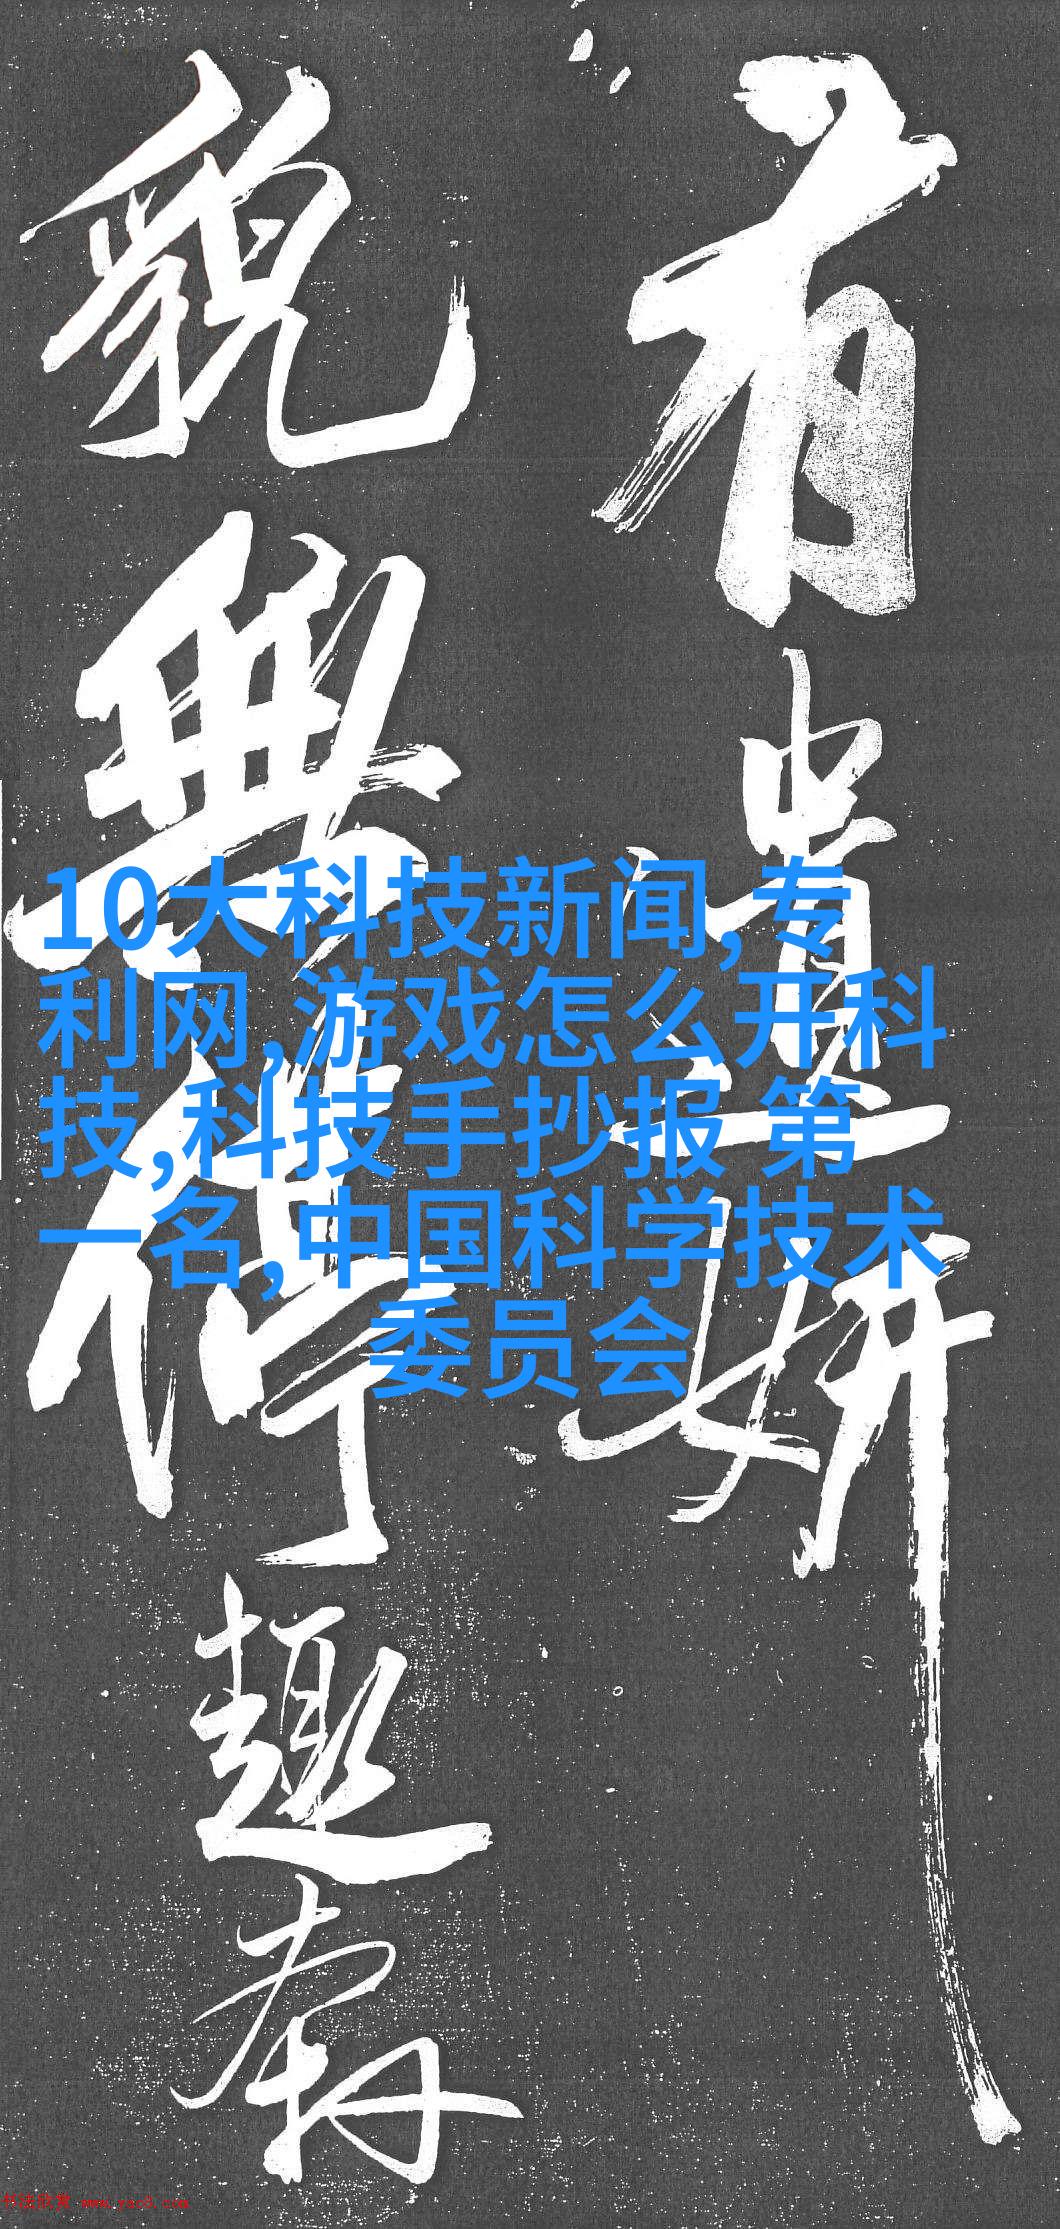 有遺妍
貌無停趣
10大科技新闻,专
利网,游戏怎么开科
技,科技手抄报 第
一名,中国科学技术
委员会
书法欣赏 www.yac8.com